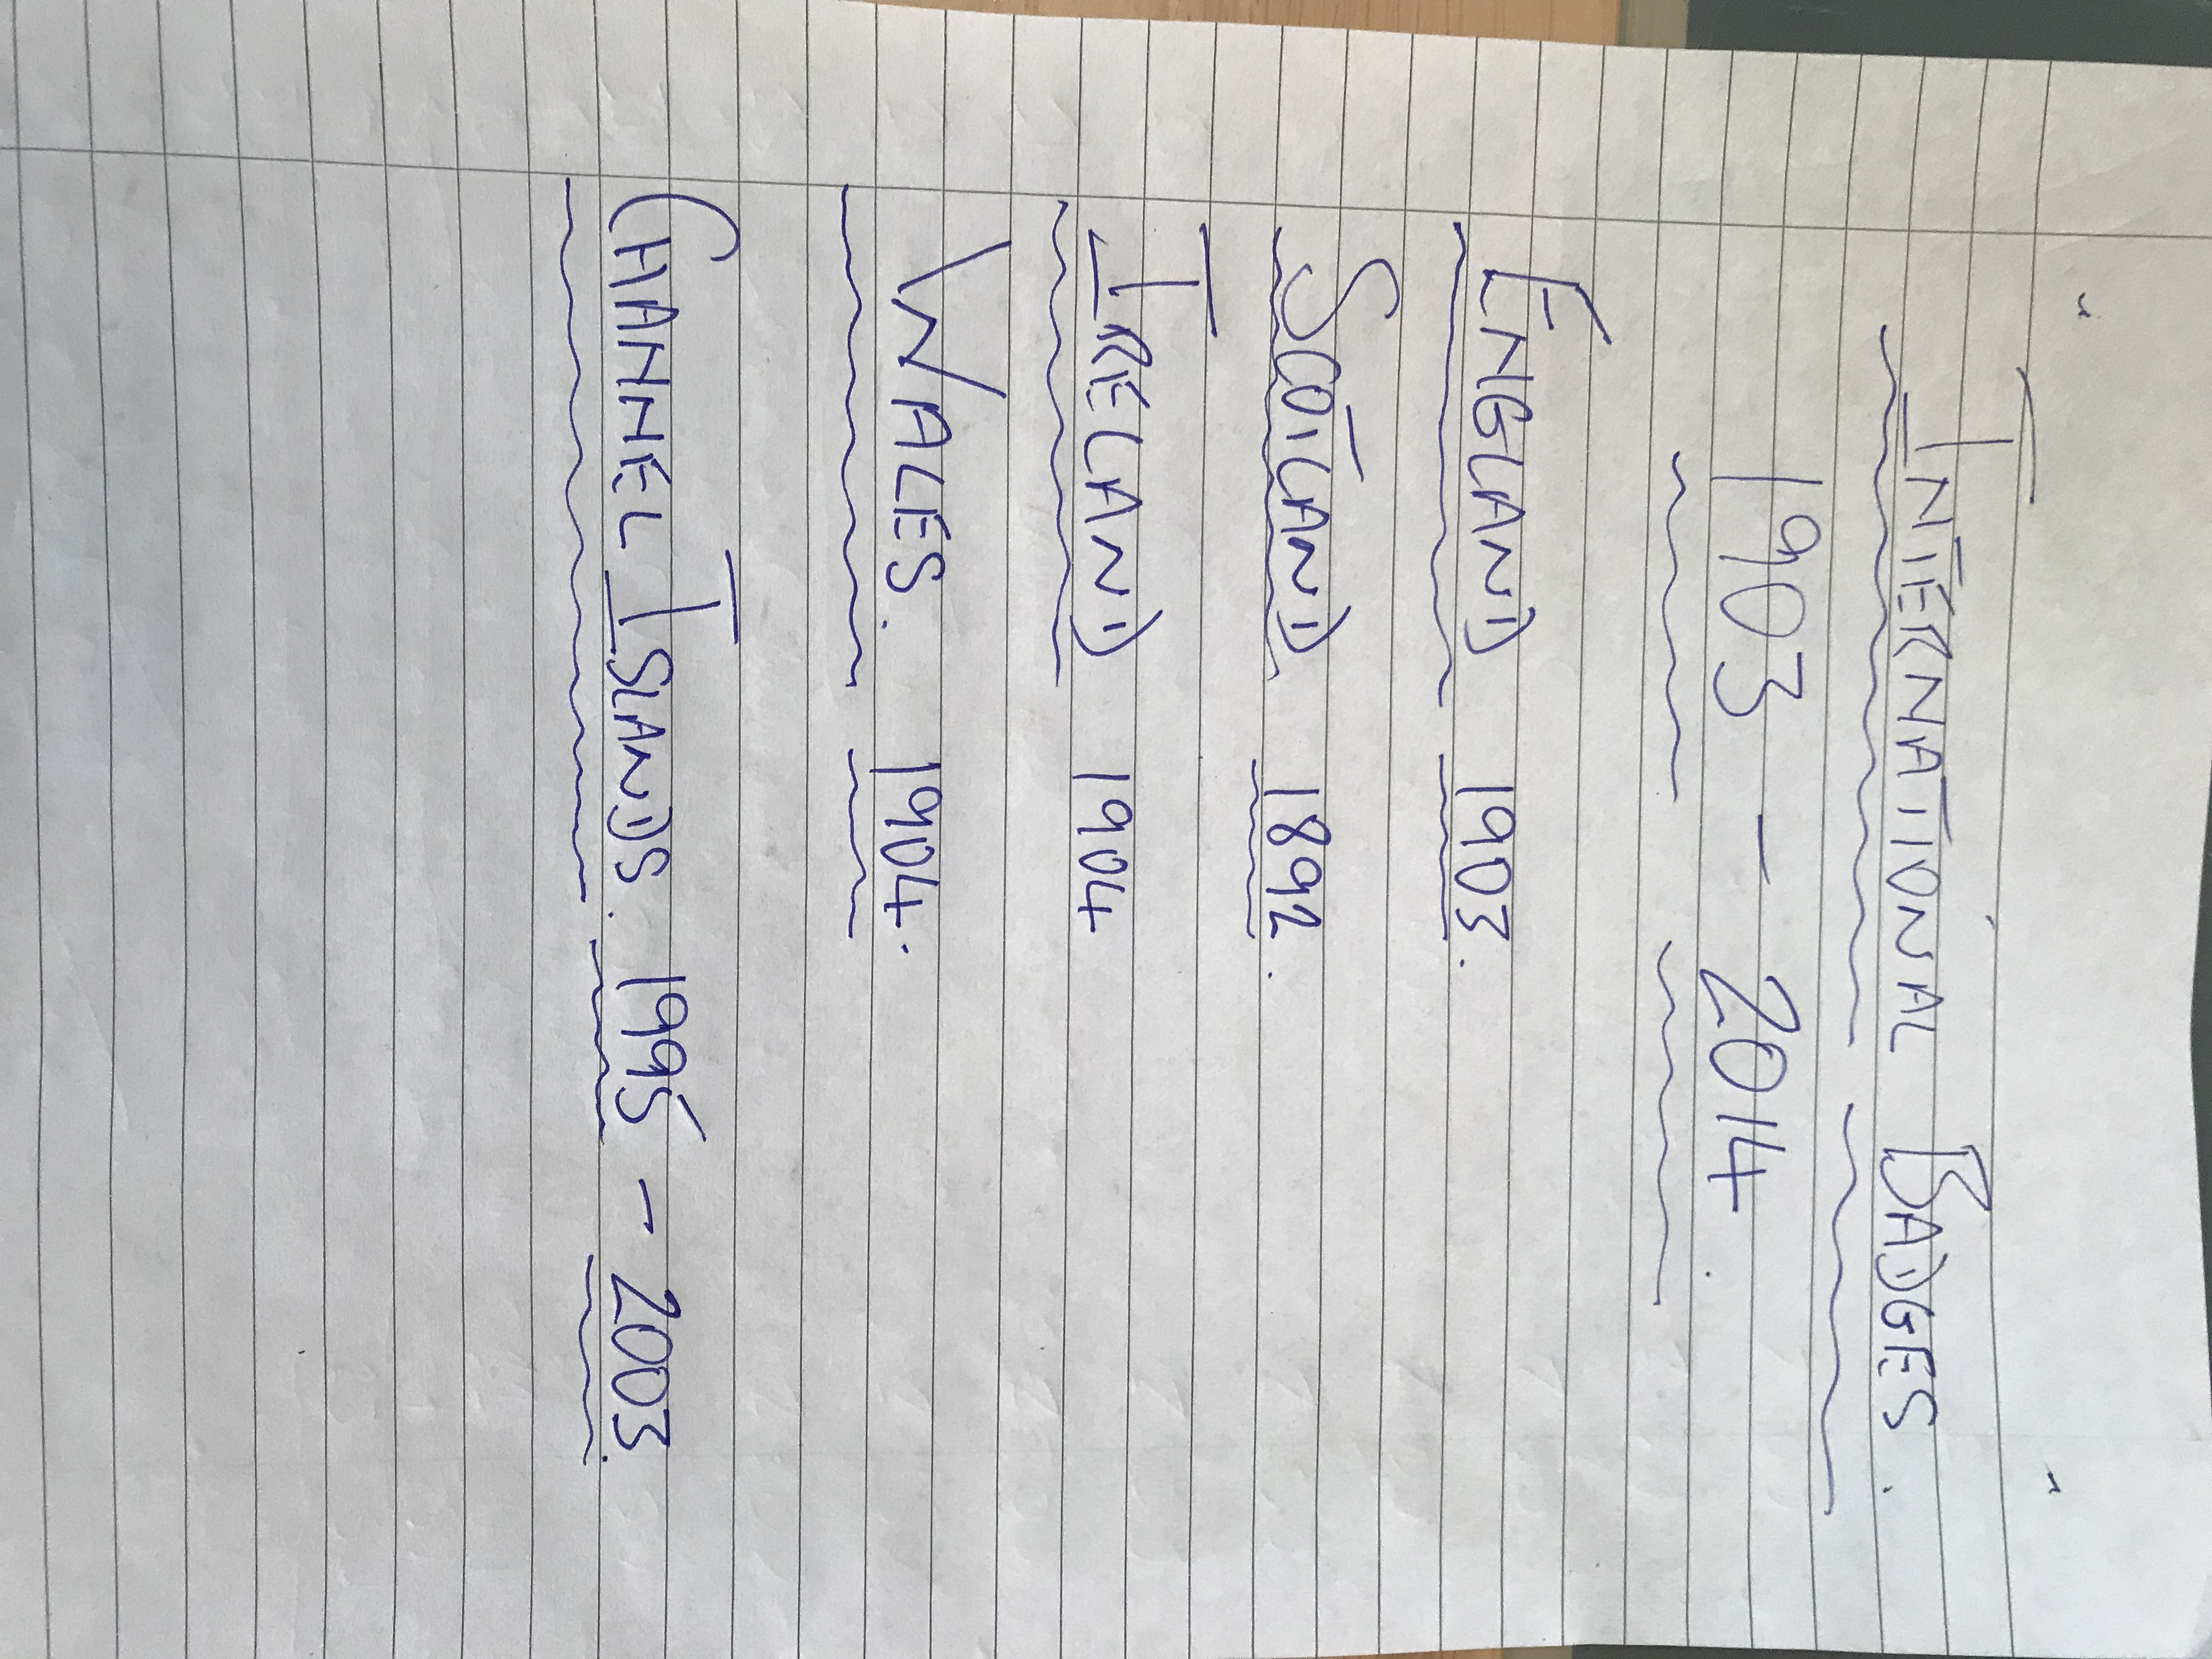 INTERNATIONAL BADGES.
1903 - 2014.
ENGLAND 1903.
SCOTLAND 1892.
IRELAND 1904
WALES. 1904.
CHANNEL ISLANDS. 1995 - 2003.